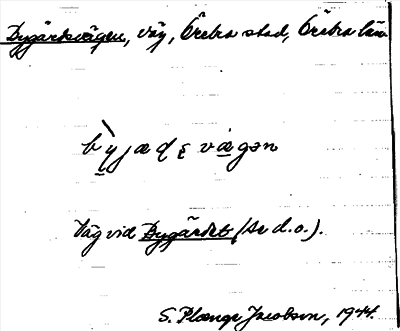 Bygärdsvägen, väg, Örebro stad, Örebro län
Väg vid Bygärdet (se d.o.).
S. Plænge Jacobson, 1944.